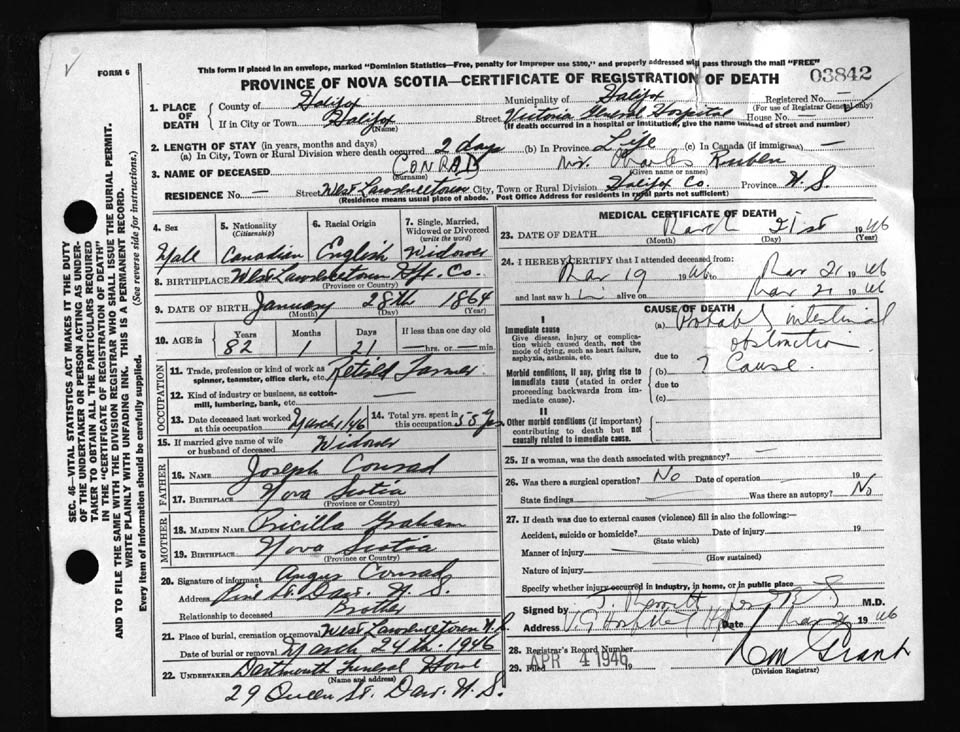 This form if placed in an envelope, marked "Dominion Statistics—Free, penalty for improper use $300," and properly addressed will pass through the mail "FREE"
FORM 6
PROVINCE OF NOVA SCOTIA—CERTIFICATE OF REGISTRATION OF DEATH
03842
1. PLACE OF DEATH
County of Halifax Municipality of Halifax Registered No. —
(For use of Registrar General only)
If in City or Town Halifax Street Victoria General Hospital House No. —
(Name) (If death occurred in a hospital or institution, give the name instead of street and number)
2. LENGTH OF STAY (in years, months and days)
(a) In City, Town or Rural Division where death occurred 2 days (b) In Province Life (c) In Canada (if immigrant) —
3. NAME OF DECEASED CONRAD Mr. Charles Ruben
(Surname) (Given name or names)
RESIDENCE No. — Street West Lawrencetown City, Town or Rural Division Halifax Co. Province N.S.
(Residence means usual place of abode. Post Office Address for residents in rural parts not sufficient)
4. Sex 5. Nationality (Citizenship) 6. Racial Origin 7. Single, Married, Widowed or Divorced (write the word)
Male Canadian English Widower
8. BIRTHPLACE West Lawrencetown Hfx. Co.
(Province or Country)
9. DATE OF BIRTH January 28th 1864
(Month) (Day) (Year)
10. AGE in Years Months Days If less than one day old
82 1 21 —hrs. or —min.
OCCUPATION
11. Trade, profession or kind of work as spinner, teamster, office clerk, etc. Retired Farmer
12. Kind of industry or business, as cotton-mill, lumbering, bank, etc. —
13. Date deceased last worked at this occupation March/46 14. Total yrs. spent in this occupation 55 yrs
15. If married give name of wife or husband of deceased Widower
FATHER
16. NAME Joseph Conrad
17. BIRTHPLACE Nova Scotia
MOTHER
18. MAIDEN NAME Pricilla Graham
19. BIRTHPLACE Nova Scotia
(Province or Country)
20. Signature of informant Angus Conrad
Address Pine St. Dar. N.S.
Relationship to deceased Brother
21. Place of burial, cremation or removal West Lawrencetown N.S.
Date of burial or removal March 24th 1946
22. UNDERTAKER Dartmouth Funeral Home
(Name and address)
29 Queen St. Dar. N.S.
MEDICAL CERTIFICATE OF DEATH
23. DATE OF DEATH March 21st 1946
(Month) (Day) (Year)
24. I HEREBY CERTIFY that I attended deceased from:
Mar 19 1946 to Mar 21 1946
and last saw him alive on Mar 21 1946
CAUSE OF DEATH
I
Immediate cause
Give disease, injury or complication which caused death, not the mode of dying, such as heart failure, asphyxia, asthenia, etc.
(a) Probably intestinal obstruction
due to
Morbid conditions, if any, giving rise to immediate cause (stated in order proceeding backwards from immediate cause).
(b) ? Cause.
due to
(c)
II
Other morbid conditions (if important) contributing to death but not causally related to immediate cause.
25. If a woman, was the death associated with pregnancy? —
26. Was there a surgical operation? No Date of operation 19
State findings Was there an autopsy? No
27. If death was due to external causes (violence) fill in also the following:—
Accident, suicide or homicide? Date 19
(State which)
Manner of injury
(How sustained)
Nature of injury
Specify whether injury occurred in industry, in home, or in public place
Signed by M.D.
Address V.G. Hospital Hfx Date Mar 1946
28. Registrar's Record Number
29. Filed APR 4 1946 19
(Division Registrar)
SEC. 46—VITAL STATISTICS ACT MAKES IT THE DUTY
OF THE UNDERTAKER OR PERSON ACTING AS UNDER-
TAKER TO OBTAIN ALL THE PARTICULARS REQUIRED
IN THE "CERTIFICATE OF REGISTRATION OF DEATH"
AND TO FILE THE SAME WITH THE DIVISION REGISTRAR WHO SHALL ISSUE THE BURIAL PERMIT.
WRITE PLAINLY WITH UNFADING INK. THIS IS A PERMANENT RECORD.
Every item of information should be carefully supplied. (See reverse side for instructions.)